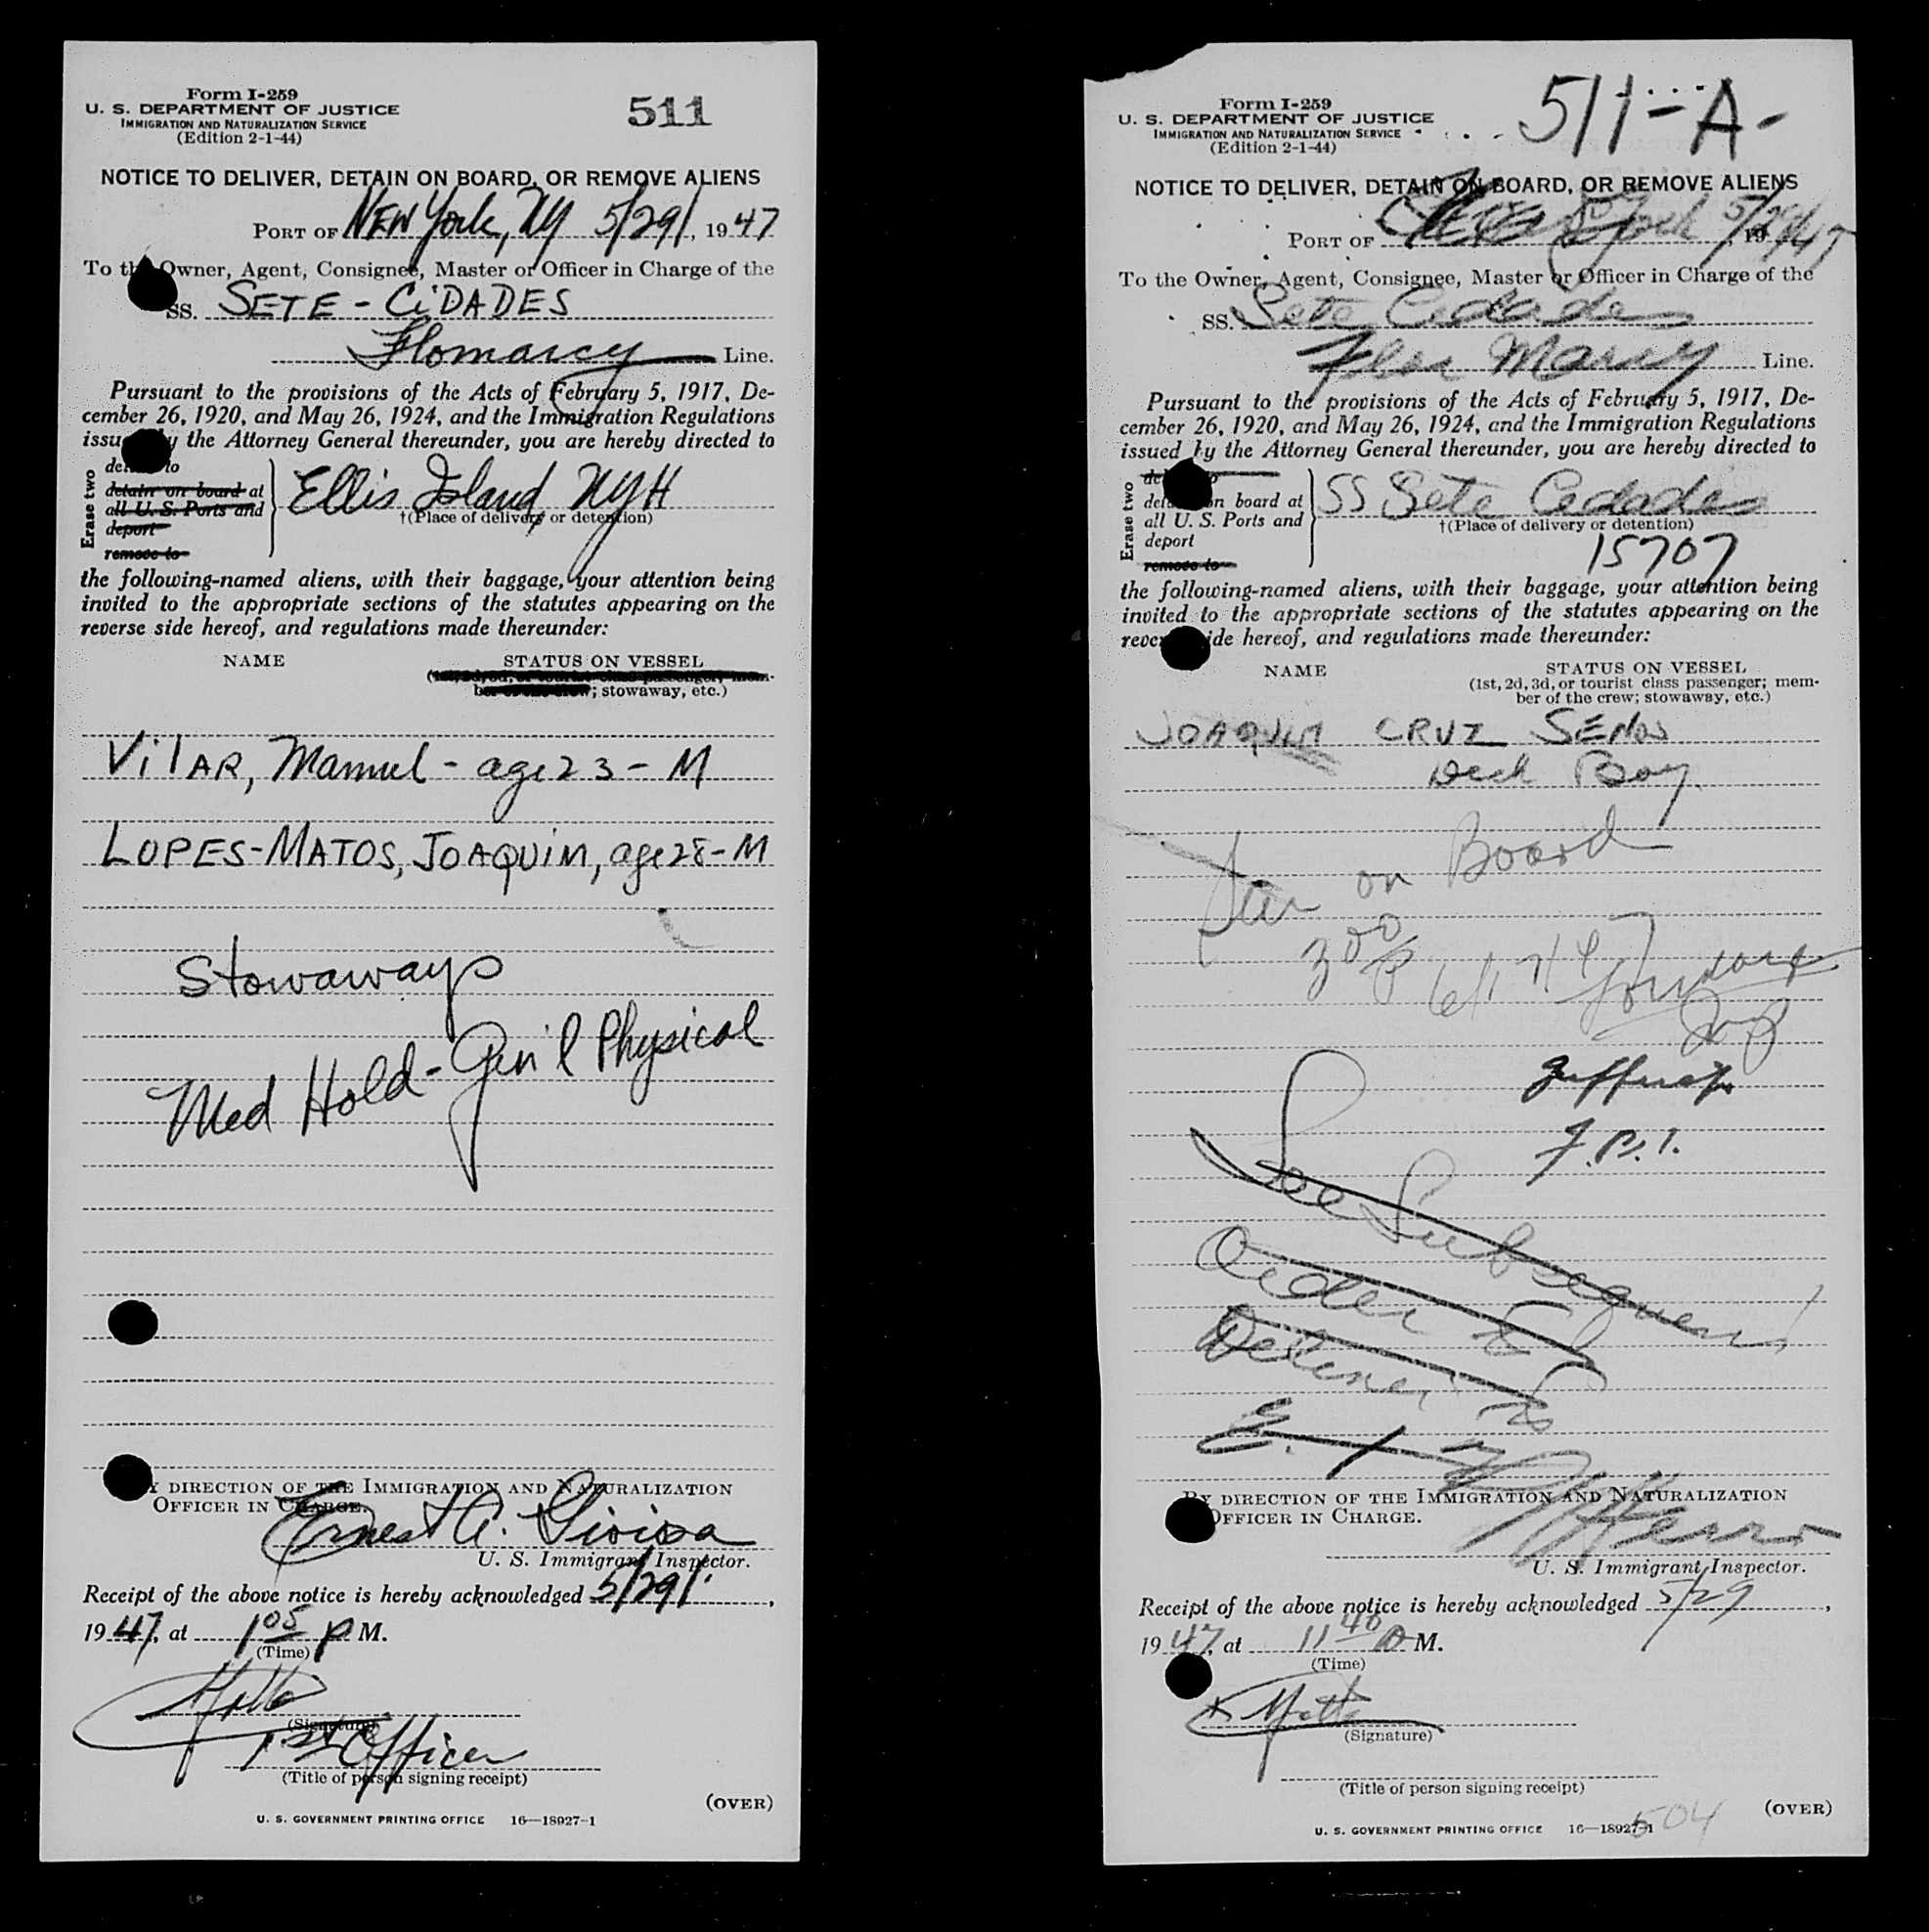 Form I-259
U. S. DEPARTMENT OF JUSTICE
IMMIGRATION AND NATURALIZATION SERVICE
(Edition 2-1-44)
511
NOTICE TO DELIVER, DETAIN ON BOARD, OR REMOVE ALIENS
PORT OF New York, NY 5/29/, 1947
To the Owner, Agent, Consignee, Master or Officer in Charge of the
SS. SETE-CiDADES
Flomarcy Line.
Pursuant to the provisions of the Acts of February 5, 1917, De-
cember 26, 1920, and May 26, 1924, and the Immigration Regulations
issued by the Attorney General thereunder, you are hereby directed to
Erase two
to
detain on board at
all U. S. Ports and
deport
remove to
Ellis Island, NYH
†(Place of delivery or detention)
the following-named aliens, with their baggage, your attention being
invited to the appropriate sections of the statutes appearing on the
reverse side hereof, and regulations made thereunder:
NAME STATUS ON VESSEL
(1st, 2d, 3d, or tourist class passenger; mem-
ber of the crew; stowaway, etc.)
VilAR, Manuel - age 23 - M
LOPES-MATOS, JOAQUIM, age 28-M
Stowaways
Med Hold - Gen'l Physical
BY DIRECTION OF THE IMMIGRATION AND NATURALIZATION
OFFICER IN CHARGE.
Ernest A.
U. S. Immigrant Inspector.
Receipt of the above notice is hereby acknowledged 5/29/,
1947, at 1 05 P M.
(Time)
(Signature)
1st Officer
(Title of person signing receipt)
(OVER)
U. S. GOVERNMENT PRINTING OFFICE 16—18927-1
Form I-259
U. S. DEPARTMENT OF JUSTICE
IMMIGRATION AND NATURALIZATION SERVICE
(Edition 2-1-44)
511-A-
NOTICE TO DELIVER, DETAIN ON BOARD, OR REMOVE ALIENS
PORT OF New York 5/29/47, 19
To the Owner, Agent, Consignee, Master or Officer in Charge of the
SS. Sete Cedades
Flor Marcy Line.
Pursuant to the provisions of the Acts of February 5, 1917, De-
cember 26, 1920, and May 26, 1924, and the Immigration Regulations
issued by the Attorney General thereunder, you are hereby directed to
Erase two
detain on board at
all U. S. Ports and
deport
remove to
SS Sete Cedades
†(Place of delivery or detention)
15707
the following-named aliens, with their baggage, your attention being
invited to the appropriate sections of the statutes appearing on the
reverse side hereof, and regulations made thereunder:
NAME STATUS ON VESSEL
(1st, 2d, 3d, or tourist class passenger; mem-
ber of the crew; stowaway, etc.)
JOAQUIM CRUZ SENOS
Deck Boy
on Board
3 00 P 6/17/47
See Subsequent
Order to
Deliver to
E. I.
BY DIRECTION OF THE IMMIGRATION AND NATURALIZATION
OFFICER IN CHARGE.
U. S. Immigrant Inspector.
Receipt of the above notice is hereby acknowledged 5/29,
1947, at 11 40 A M.
(Time)
(Signature)
(Title of person signing receipt)
(OVER)
U. S. GOVERNMENT PRINTING OFFICE 16—18927-1
504